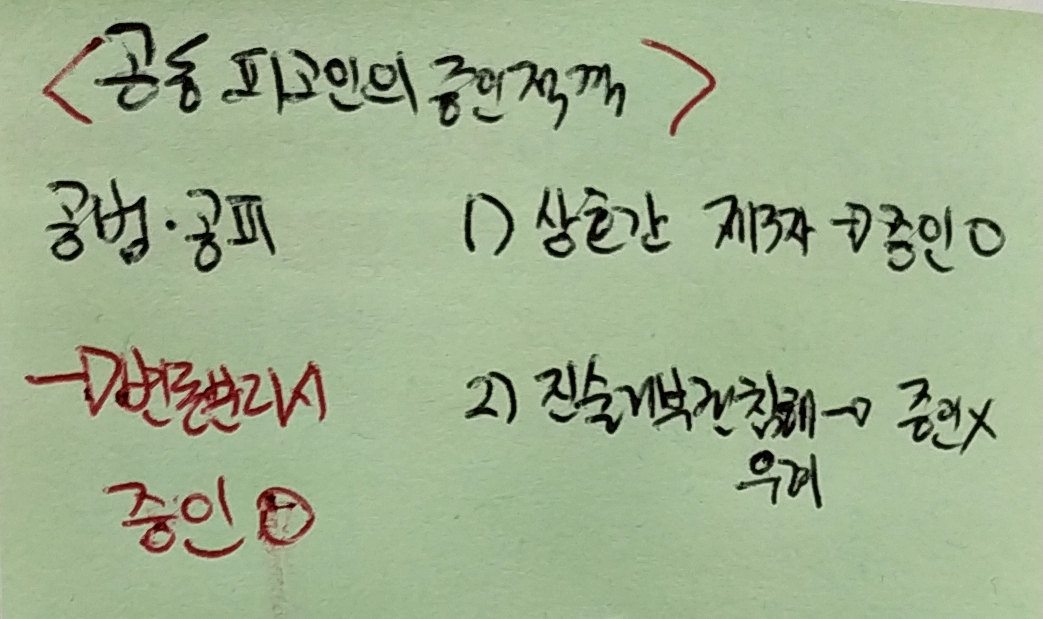 <공동 피고인의 증인적격>
공범·공피
1) 상호간 제3자 → 증인 O
→ 변론분리시
증인 O
2) 진술거부권 침해 → 증인 X
우려